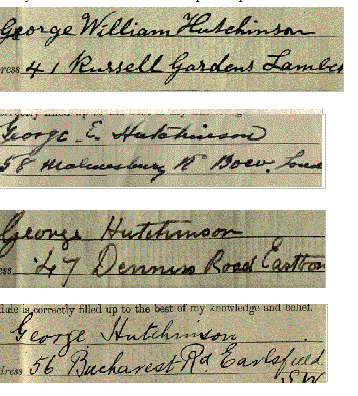 George William Hutchinson
ress 41 Russell Gardens Lambe
George E. Hutchinson
58 Malmesbury Rd Bow, Lond
George Hutchinson
ss. 47 Dennis Road Eastbou
dule is correctly filled up to the best of my knowledge and belief.
George Hutchinson
dress 56 Bucharest Rd. Earlsfield
S.W.